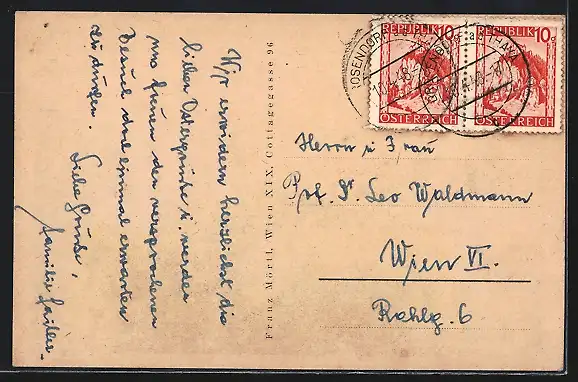 Wir erwidern herzlichst die
lieben Ostergrüße u. werden
uns freuen den versprochenen
Besuch doch einmal erwarten
zu dürfen.
Liebe Grüße,
Familie
Franz Mörtl, Wien XIX, Cottagegasse 96
REPUBLIK 10g
ÖSTERREICH
REPUBLIK 10g
ÖSTERREICH
Herrn u Frau
Prof. Dr. Leo Waldmann
Wien VI.
Rahlg. 6